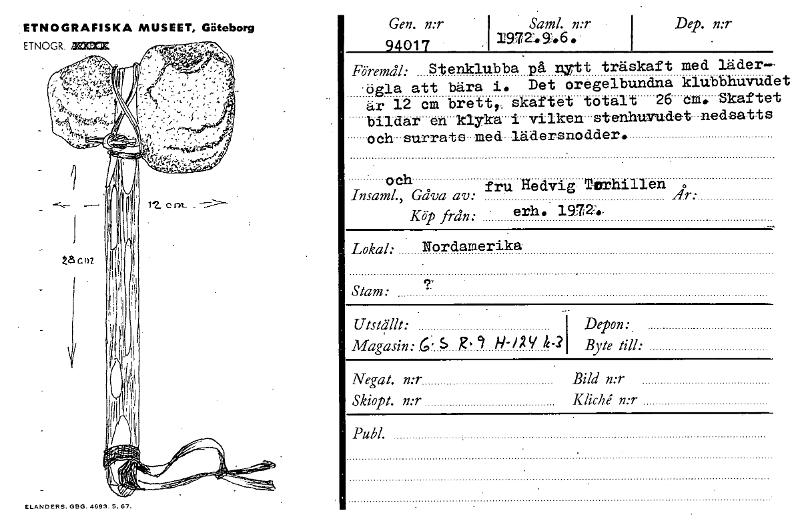 ETNOGRAFISKA MUSEET, Göteborg
ETNOGR.
12 cm
28 cm
ELANDERS. GBG. 4693. 5. 67.
Gen. n:r Saml. n:r Dep. n:r
94017 1972.9.6.
Föremål: Stenklubba på nytt träskaft med läder-
ögla att bära i. Det oregelbundna klubbhuvudet
är 12 cm brett, skaftet totalt 26 cm. Skaftet
bildar en klyka i vilken stenhuvudet nedsatts
och surrats med lädersnodder.
och
Insaml., Gåva av: fru Hedvig Torhillen År:
Köp från: erh. 1972.
Lokal: Nordamerika
Stam: ?
Utställt: Depon:
Magasin: G. S R. 9 H-124 k-3 Byte till:
Negat. n:r Bild n:r
Skiopt. n:r Kliché n:r
Publ.